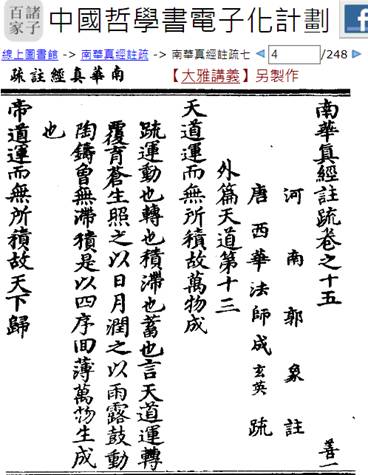 諸子百家 中國哲學書電子化計劃
線上圖書館 -> 南華真經註疏 -> 南華真經註疏七 4 /248
南華真經註疏 【大雅講義】另製作
南華真經註疏卷之十五 善一
河南郭象註
唐西華法師成玄英疏
外篇天道第十三
天道運而無所積故萬物成
疏運動也轉也積滯也蓄也言天道運轉
覆育蒼生照之以日月潤之以雨露鼓動
陶鑄曾無滯積是以四序回薄萬物生成
也
帝道運而無所積故天下歸